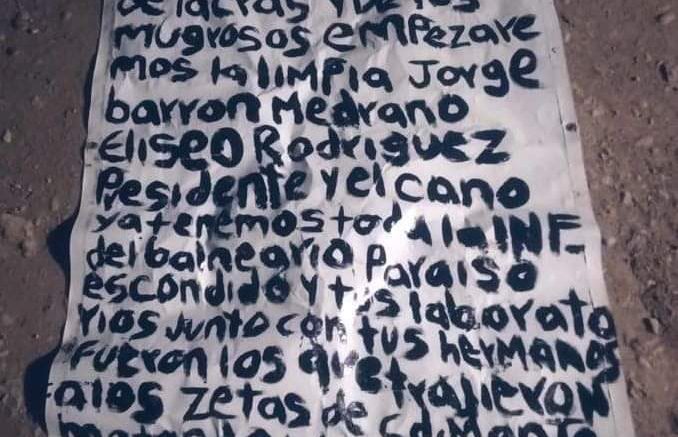 de lacras y de los
mugrosos empezare
mos la limpia Jorge
barron Medrano
Eliseo Rodriguez
Presidente y el cano
ya tenemos toda la INF_
del balneario Paraiso
escondido y tus laborato
rios junto con tus hermanos
fueron los que trajieron
a los zetas de